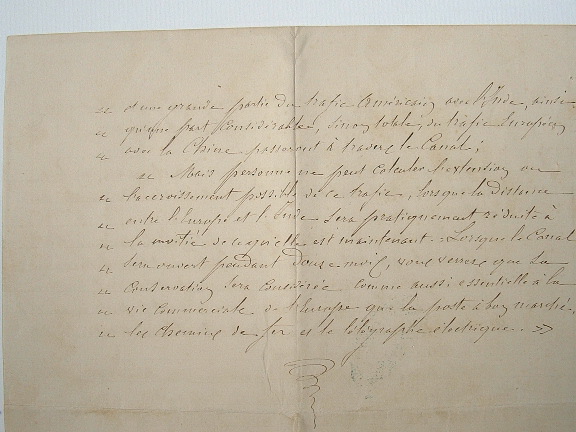 « et une grande partie du trafic Américain avec l'Inde, ainsi
« qu'une part considérable, sinon totale, du trafic Européen
« avec la Chine passeront à travers le Canal;
« Mais personne ne peut calculer l'extension ou
« l'accroissement possible de ce trafic, lorsque la distance
« entre l'Europe et l'Inde sera pratiquement réduite à
« la moitié de ce qu'elle est maintenant. Lorsque le Canal
« sera ouvert pendant douze mois, vous verrez que sa
« conservation sera considérée comme aussi essentielle à la
« vie commerciale de l'Europe que la poste à bon marché,
« les chemins de fer et le télégraphe électrique. »